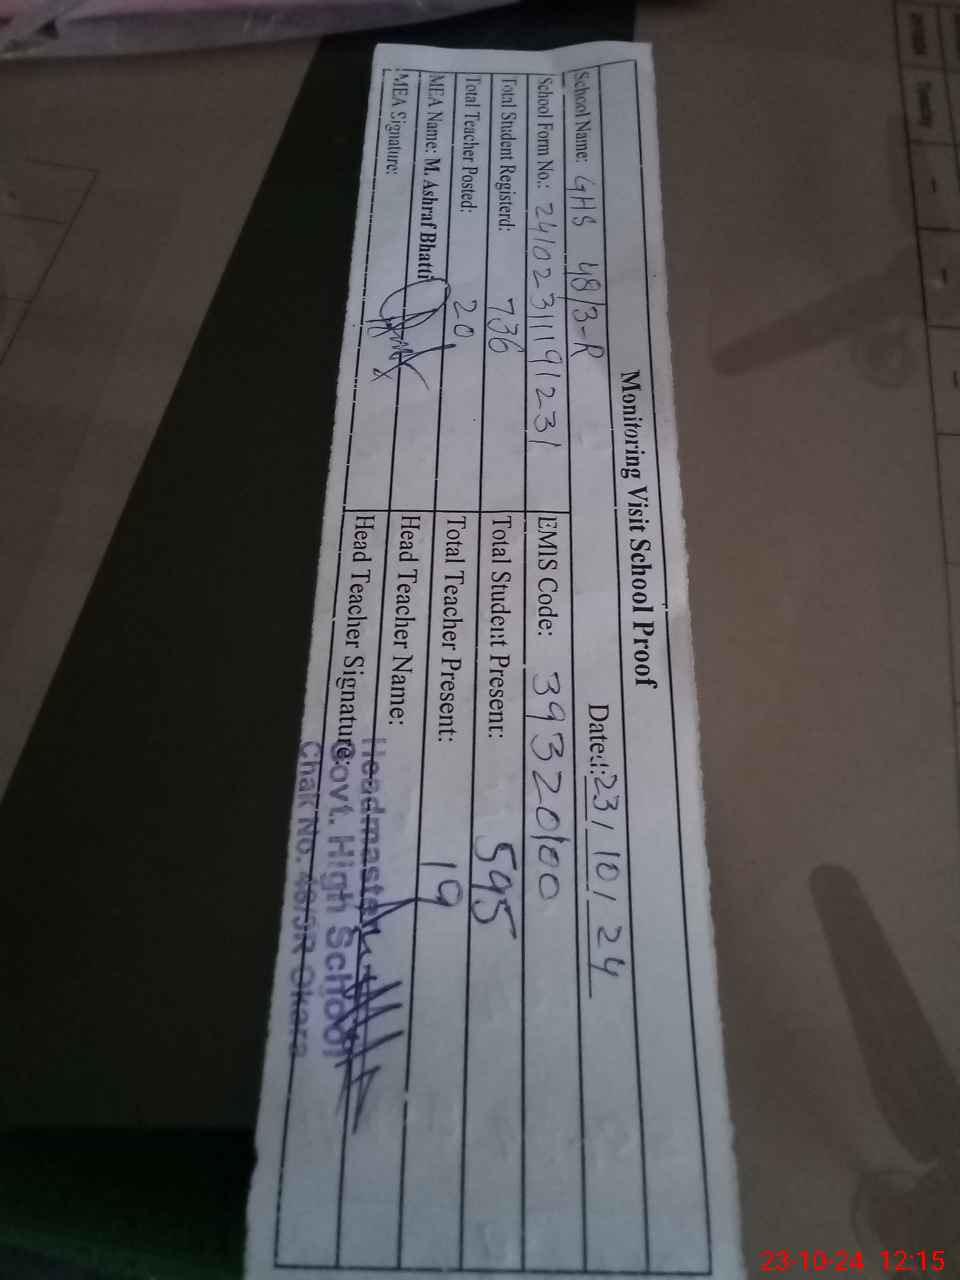 Monitoring Visit School Proof
School Name: GHS 48/3-R Dated: 23/10/24
School Form No.: 24102311191231 EMIS Code: 39320100
Total Student Registerd: 736 Total Student Present: 595
Total Teacher Posted: 20 Total Teacher Present: 19
MEA Name: M. Ashraf Bhatti Head Teacher Name:
MEA Signature: Head Teacher Signature:
Headmaster
Govt. High School
Chak No. 48/3R Okara
23-10-24 12:15